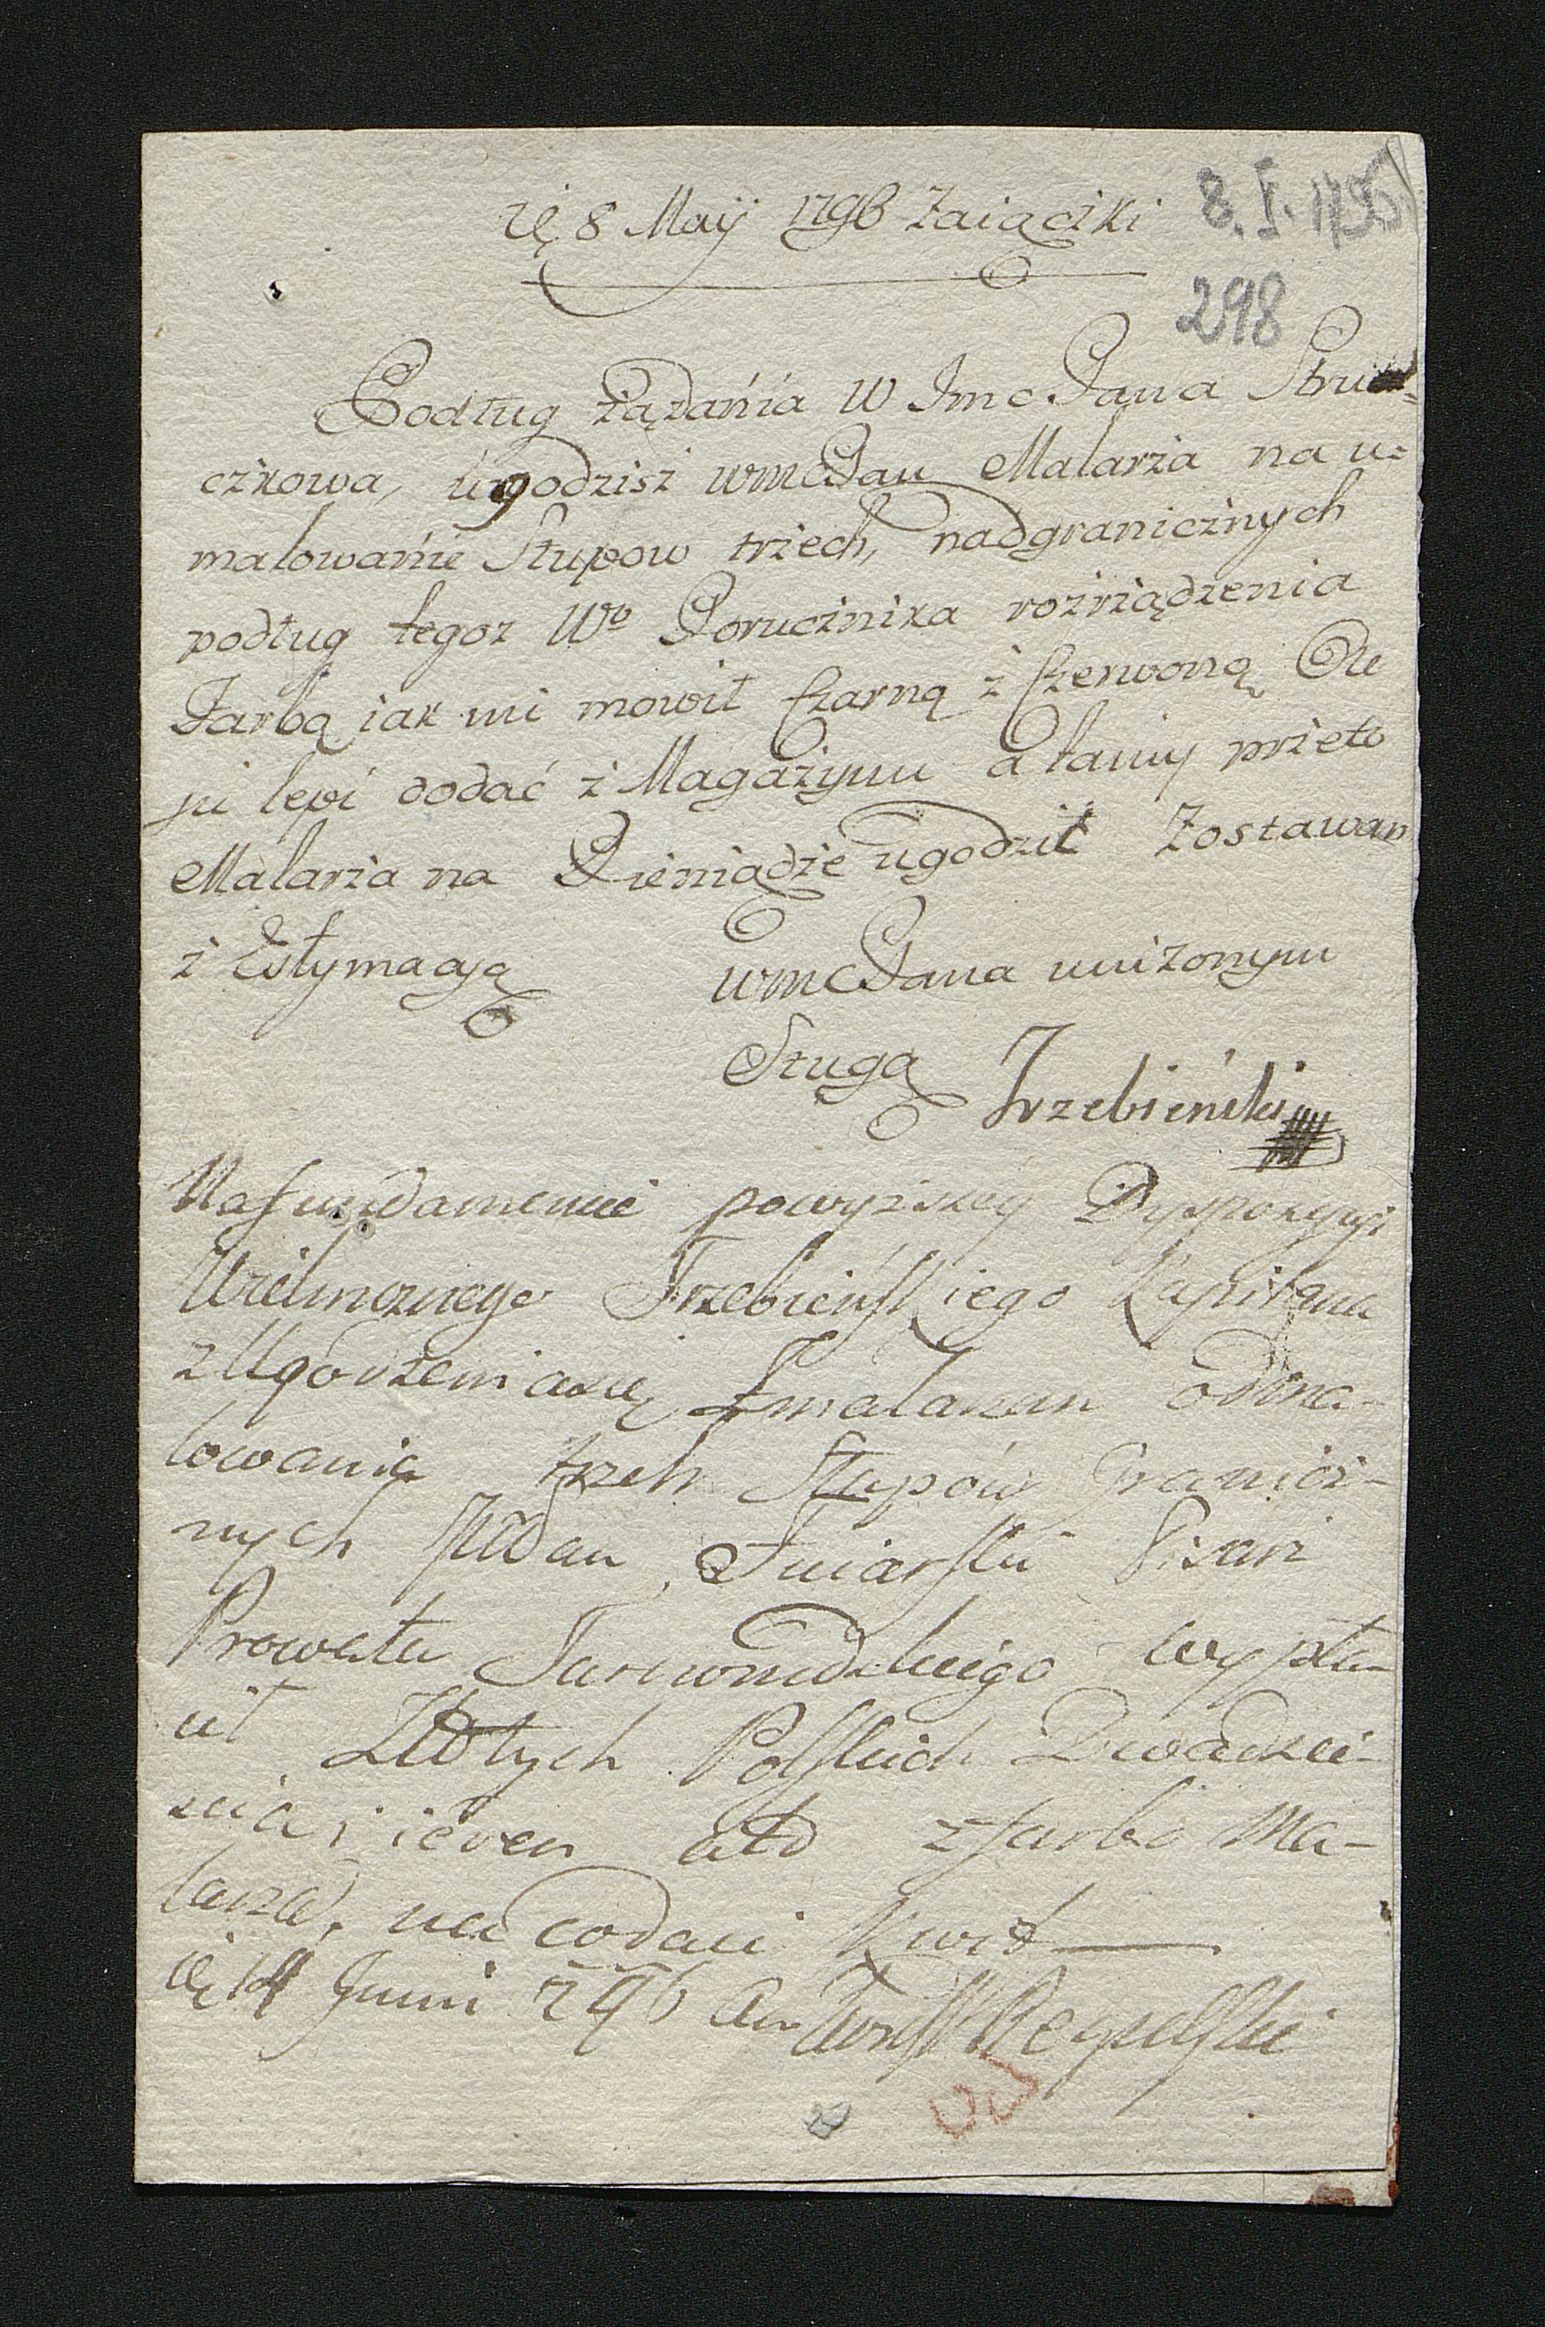 8. I. 1795
z Ę 8 Maÿ 1796 Zaiączki
298
Podług żądańia W Imc Pana Strucz=
czkowa, ugodzisz wmcPan Malarża na u=
malowańie Słupow trżech, nadgranicżnych
podług tegoz Wo Porucżnika rożrżądzenia
Farbą iak mi mowił Czarną ż Czerwoną Ole
ju lepi dodać ż Magażynu a tani prżeto
Malarża na Pieniądże ugodzić Zostawam
ż Estymacyą wmcPana uniżonym
Sługą Trzebieński
Na fundamencie powyższey Dyspozycyi
Wielmoznego Trzebieńskiego Kapitana
z Ugodzeniasię z malarzem odma-
lowania trzeh Słupów Granicz-
nych JPan Swiarski Pisarz
Prowetu wypła-
cił Złotych Polskich Dwadzie-
scia i ieden ato zfarbo Ma-
larza, na co daie Kwit
Dę 14 Juni 796 An Regulski